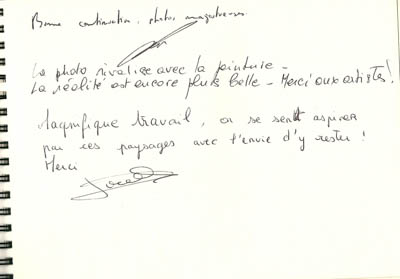 Bonne continuation, photos magnifiques
La photo rivalise avec la peinture -
La réalité est encore plus belle - Merci aux artistes!
Magnifique travail, on se sent aspirer
par ces paysages avec l'envie d'y rester !
Merci